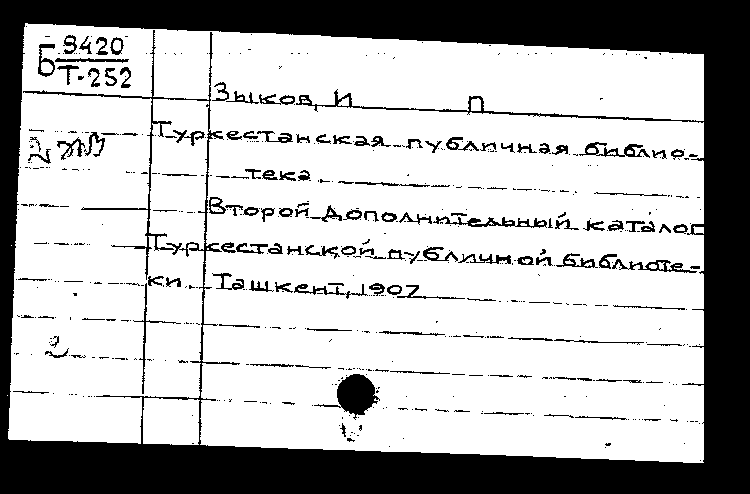 Б 8420
Т-252
Зыков, И П
Туркестанская публичная библио-
тека.
Второй дополнительный каталог
Туркестанской публичной библиоте-
ки. Ташкент, 1907
2